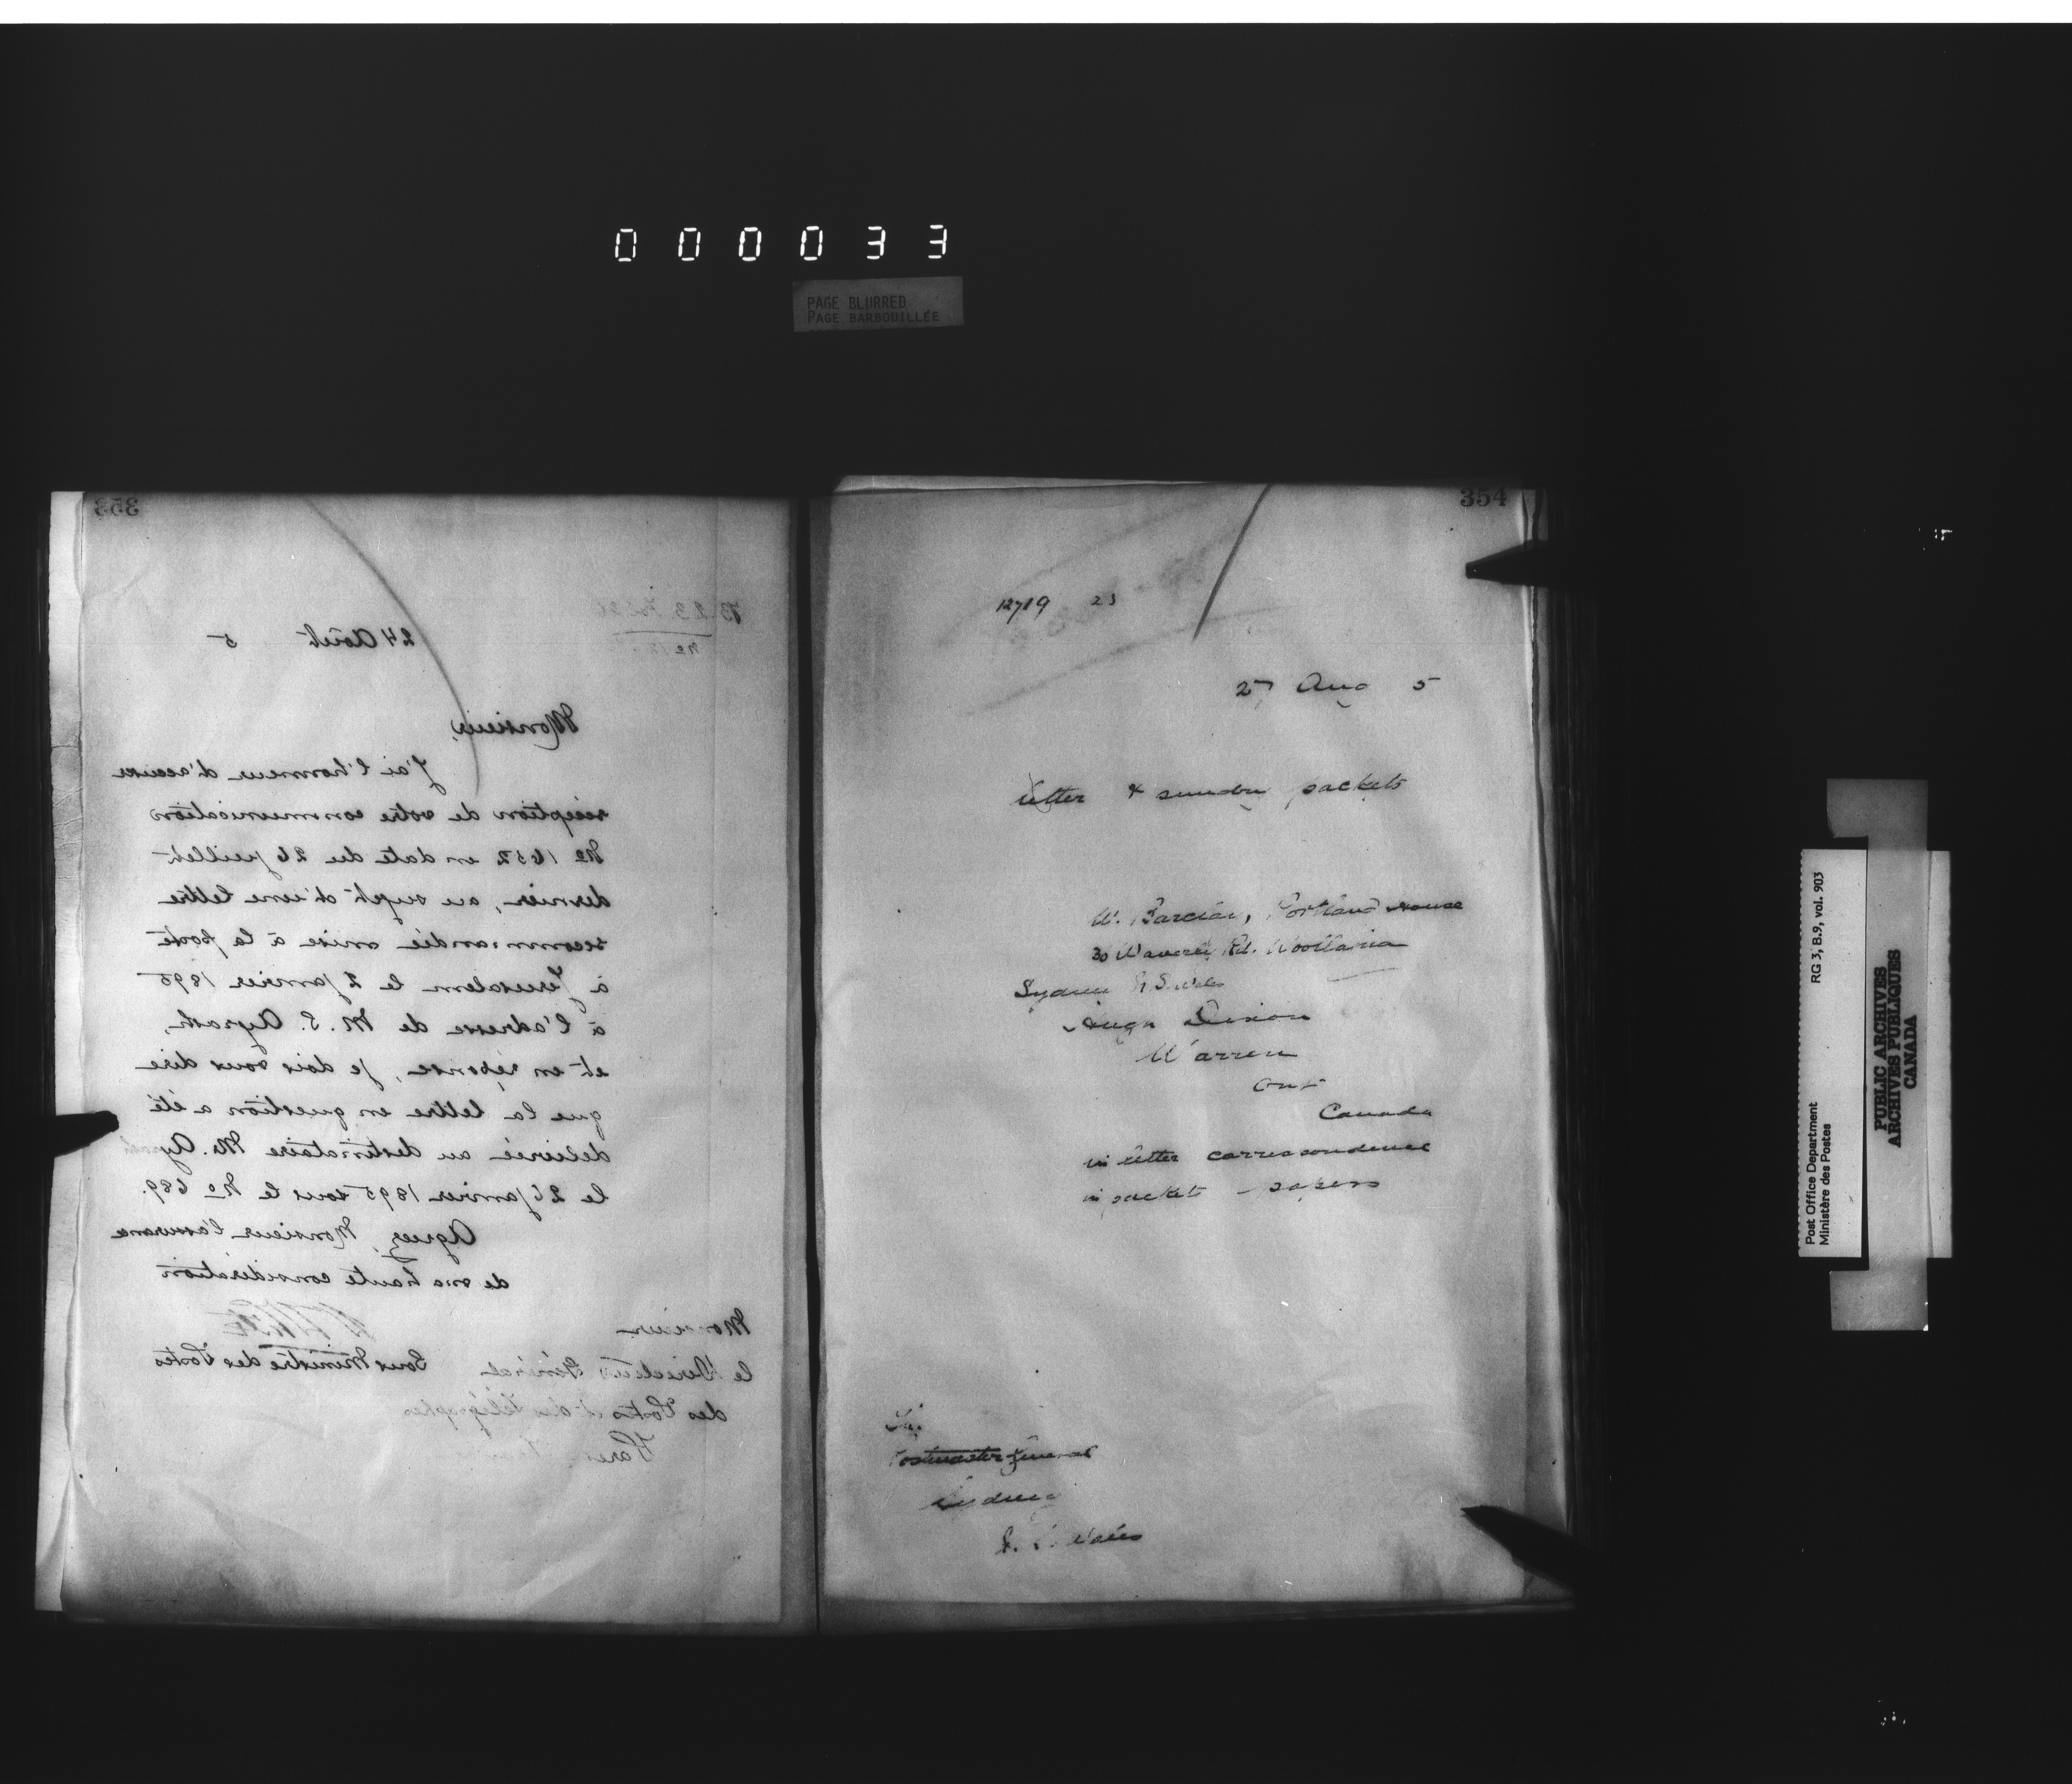 000033
PAGE BLURRED
PAGE BARBOUILLÉE
353
24 Août 5
Monsieur,
J'ai l'honneur d'accuser
réception de votre communication
No 1652 en date du 26 juillet
dernier, au sujet d'une lettre
recommandée mise à la poste
à Jerusalem le 2 janvier 1895
à l'adresse de M. S. Ayrash,
et en réponse, je dois vous dire
que la lettre en question a été
délivrée au destinataire M. Ayrash
le 26 janvier 1895 sous le No 689.
Agréez, Monsieur l'assurance
de ma haute considération
Sous Ministre des Postes
Monsieur
le Directeur Général
des Postes et des Télégraphes
Paris
354
12719 23
27 Aug 5
letter & sundry packets
W. Barclay, Portland House
30 Waverly Rd. Woollahra
Sydney N S Wales
Hugh Dixon
Warren
Ont
Canada
in letter correspondence
in packets - papers
The
Postmaster General
Sydney
N. S. Wales
Post Office Department
Ministère des Postes
RG 3, B.9, vol. 903
PUBLIC ARCHIVES
ARCHIVES PUBLIQUES
CANADA